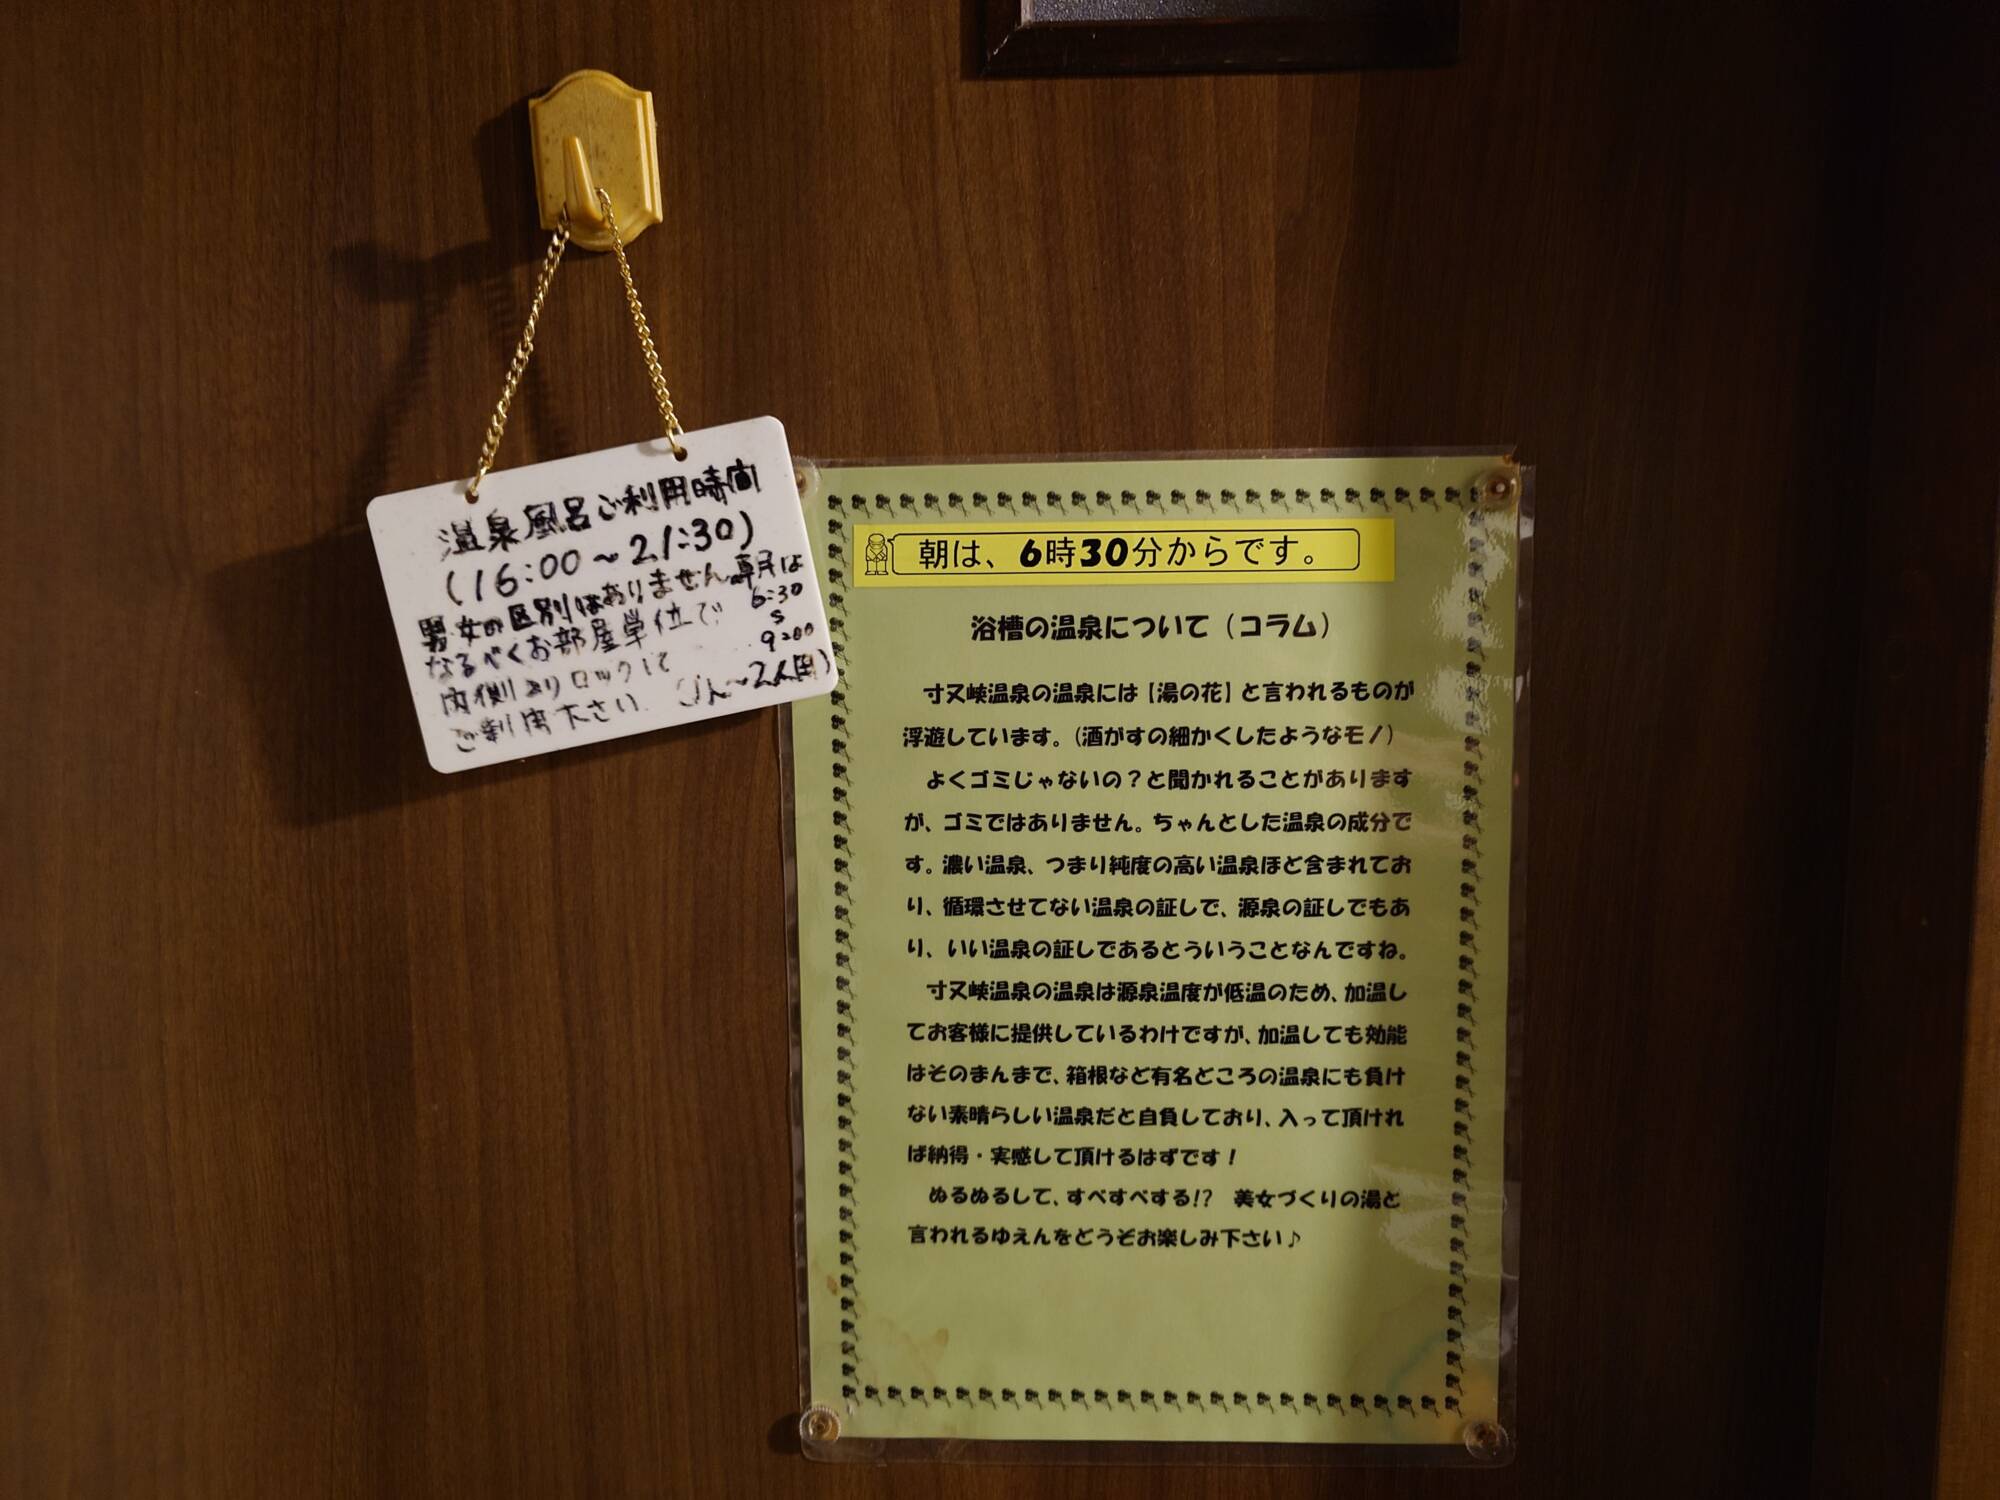 温泉風呂ご利用時間
(16:00～21:30)
男女の区別はありません 朝は
なるべくお部屋単位で 6:30
内側よりロックして 9:00
ご利用下さい (1人～2人用)
朝は、6時30分からです。
浴槽の温泉について（コラム）
寸又峡温泉の温泉には【湯の花】と言われるものが
浮遊しています。（酒がすの細かくしたようなモノ）
よくゴミじゃないの？と聞かれることがあります
が、ゴミではありません。ちゃんとした温泉の成分で
す。濃い温泉、つまり純度の高い温泉ほど含まれてお
り、循環させてない温泉の証しで、源泉の証しでもあ
り、いい温泉の証しであるとういうことなんですね。
寸又峡温泉の温泉は源泉温度が低温のため、加温し
てお客様に提供しているわけですが、加温しても効能
はそのまんまで、箱根など有名どころの温泉にも負け
ない素晴らしい温泉だと自負しており、入って頂けれ
ば納得・実感して頂けるはずです！
ぬるぬるして、すべすべする!?　美女づくりの湯と
言われるゆえんをどうぞお楽しみ下さい♪